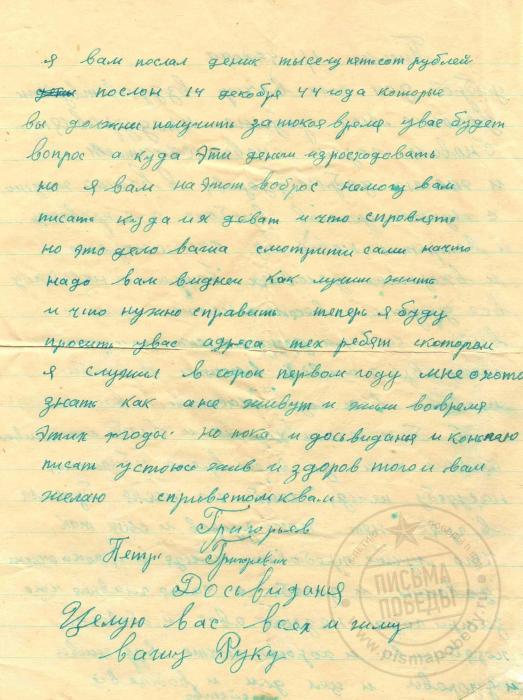 я вам послал деник тысечу пятьсот рублей
послон 14 декабря 44 года которые
вы должни получить за токоя время увас будет
вопрос а куда Эти деньги израсходовать
но я вам на этот воброс немогу вам
писать куда их деват и что справлять
но это дело ваша смотрити сами начто
надо вам видней как лучши жить
и что нужно справить теперь я буду
просить увас адреса тех ребят скотором
я служил в сорок первом году мне охота
знать как ане живут и жили вовремя
этих годы но пока и досвиданя и кончаю
писат устоюсь жив и здоров того и вам
желаю сприветом квам
Григорьев
Петр Григоревич
Досвиданя
Целую вас всех и жму
вашу Руку
ПИСЬМА
ПОБЕДЫ
www.pismapobedy.ru